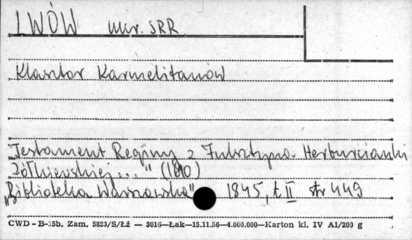 LWÓW ukr. SRR
Klasztor Karmelitanów
"Testament Reginy z Fulsztyna Herburcianki
Żółkiewskiej..." (1610)
"Biblioteka Warszawska" 1845, t. II str 449
CWD - B-35b. Zam. 5823/S/ŁŻ — 3016—Łak—15.11.56—4.000.000—Karton kl. IV A1/200 g